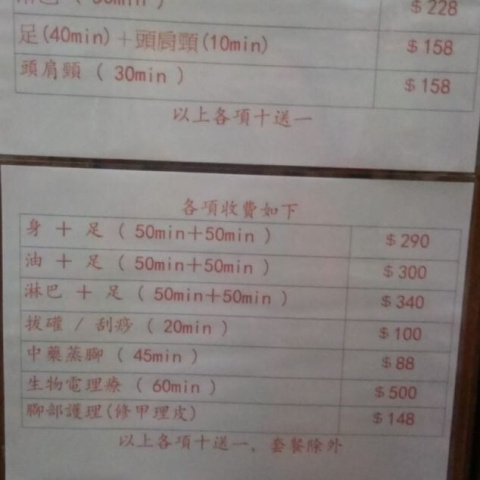 $228
足(40min)+頭肩頸(10min) $158
頭肩頸 ( 30min ) $158
以上各項十送一
各項收費如下
身 + 足 ( 50min+50min ) $290
油 + 足 ( 50min+50min ) $300
淋巴 + 足 ( 50min+50min ) $340
拔罐 / 刮痧 ( 20min ) $100
中藥蒸腳 ( 45min ) $88
生物電理療 ( 60min ) $500
腳部護理(修甲理皮) $148
以上各項十送一, 套餐除外